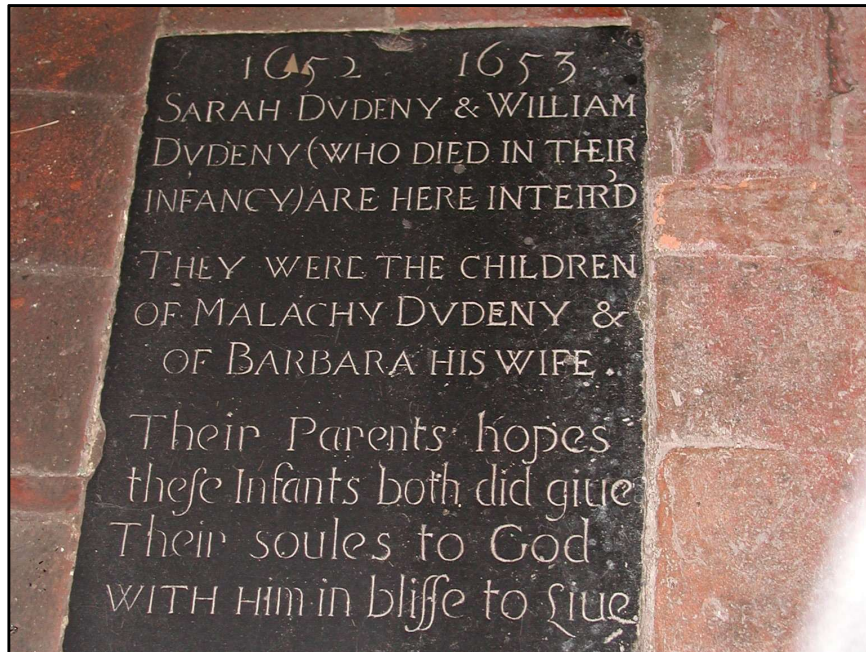 1652 1653
SARAH DVDENY & WILLIAM
DVDENY (WHO DIED IN THEIR
INFANCY) ARE HERE INTEIR'D
THEY WERE THE CHILDREN
OF MALACHY DVDENY &
OF BARBARA HIS WIFE.
Their Parents hopes
theſe Infants both did giue
Their soules to God
WITH HIM in bliſſe to Liue.